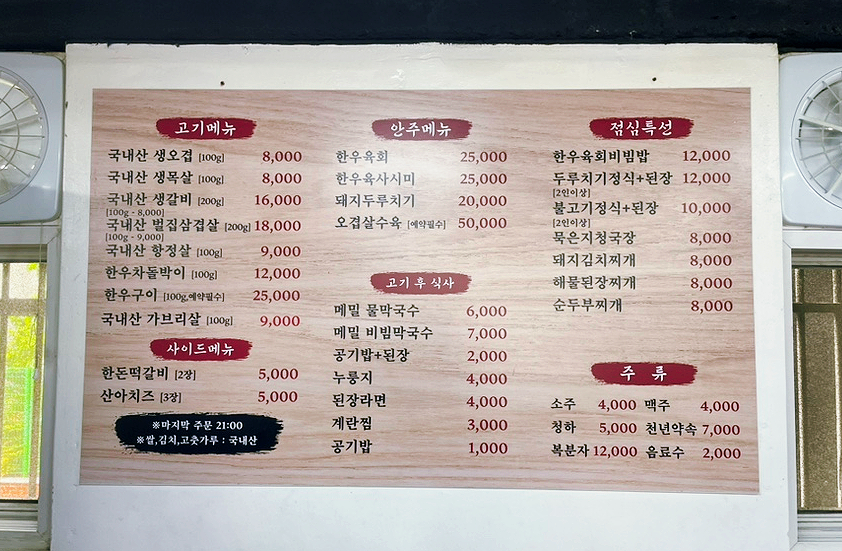 고기메뉴
국내산 생오겹 [100g] 8,000
국내산 생목살 [100g] 8,000
국내산 생갈비 [200g] 16,000
[100g - 8,000]
국내산 벌집삼겹살 [200g] 18,000
[100g - 9,000]
국내산 항정살 [100g] 9,000
한우차돌박이 [100g] 12,000
한우구이 [100g,예약필수] 25,000
국내산 가브리살 [100g] 9,000
사이드메뉴
한돈떡갈비 [2장] 5,000
산아치즈 [3장] 5,000
※마지막 주문 21:00
※쌀,김치,고춧가루 : 국내산
안주메뉴
한우육회 25,000
한우육사시미 25,000
돼지두루치기 20,000
오겹살수육 [예약필수] 50,000
고기 후 식사
메밀 물막국수 6,000
메밀 비빔막국수 7,000
공기밥+된장 2,000
누룽지 4,000
된장라면 4,000
계란찜 3,000
공기밥 1,000
점심특선
한우육회비빔밥 12,000
두루치기정식+된장 12,000
[2인이상]
불고기정식+된장 10,000
[2인이상]
묵은지청국장 8,000
돼지김치찌개 8,000
해물된장찌개 8,000
순두부찌개 8,000
주 류
소주 4,000 맥주 4,000
청하 5,000 천년약속 7,000
복분자 12,000 음료수 2,000